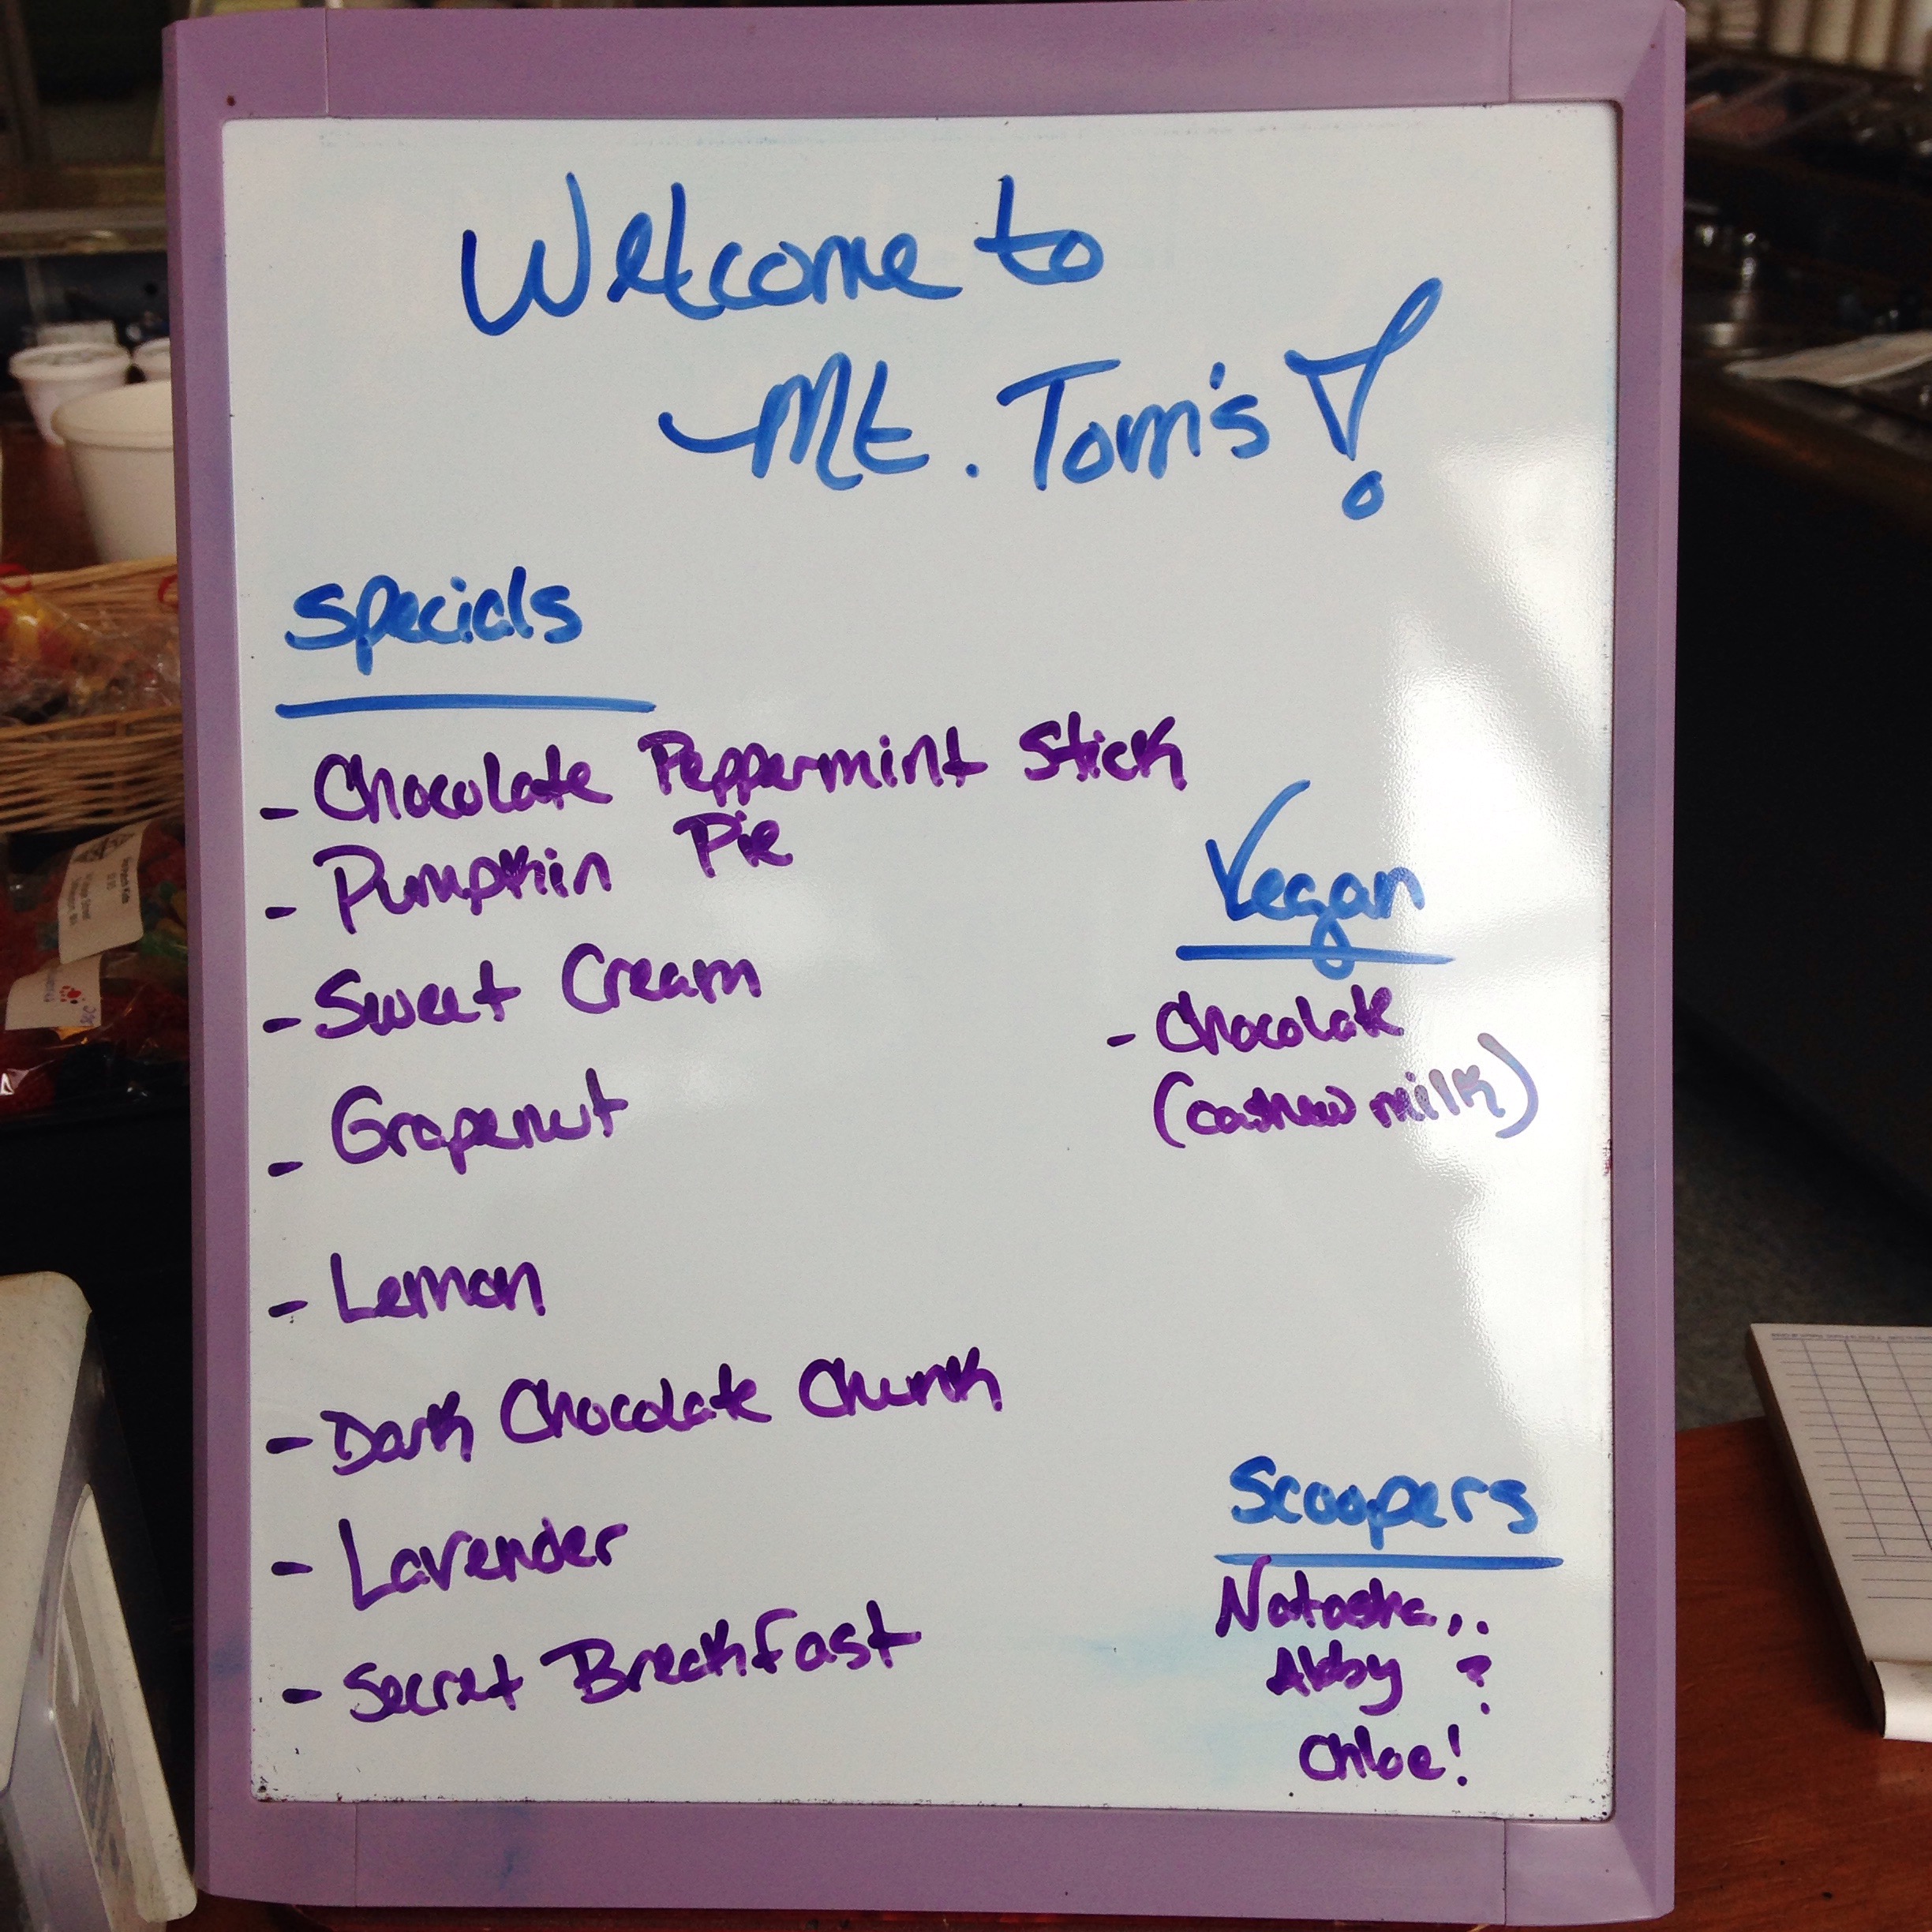 Welcome to
Mt. Tom's!
Specials
- Chocolate Peppermint Stick
- Pumpkin Pie
- Sweet Cream
- Grapenut
- Lemon
- Dark Chocolate Chunk
- Lavender
- Secret Breakfast
Vegan
- Chocolate
(cashew milk)
Scoopers
Natasha..
Abby ?
Chloe!